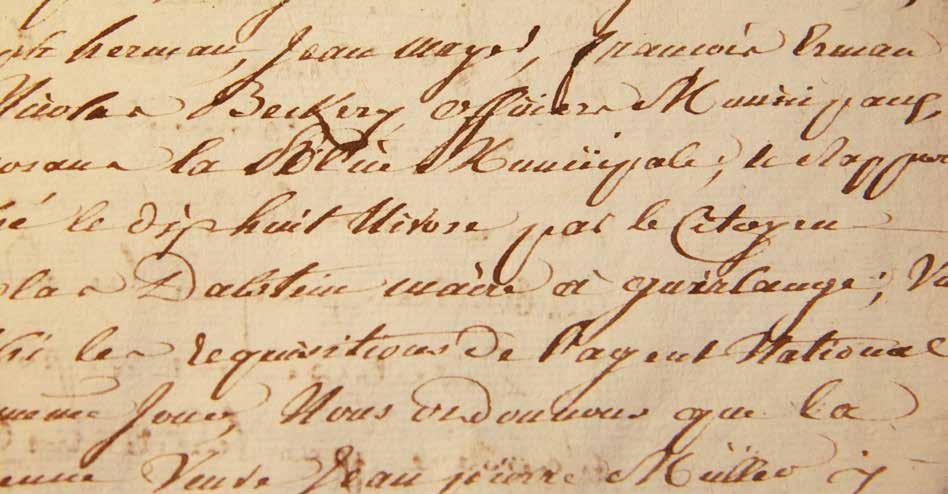 herman, Jean mayer, francois Erman
Nicolas Beckery officiers Municipaux,
la Police Municipale; le Rappor
le dix huit Nivose par le Citoyen
olas Dalstein maire a guirlange; Vu
les requisitions de l'agent National
meme Jour, Nous ordonnons que la
enne Veuve Jean pierre Müller y